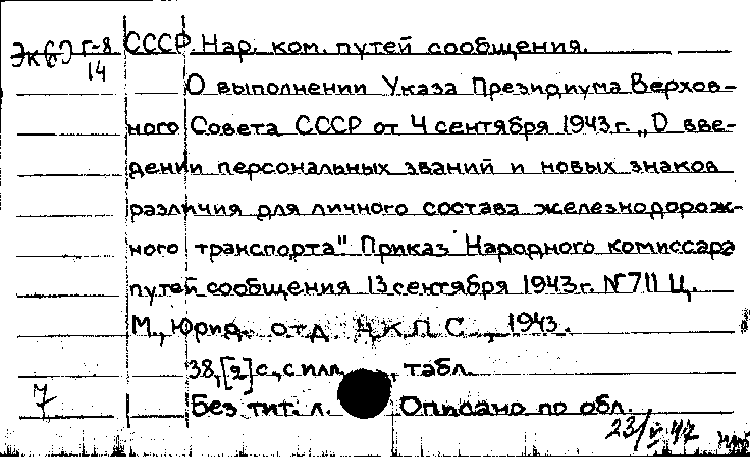 ЭКСЭ Г-8 СССР. Нар. ком. путей сообщения.
14
О выполнении Указа Президиума Верхов-
ного Совета СССР от 4 сентября 1943 г. „О вве-
дении персональных званий и новых знаков
различия для личного состава железнодорож-
ного транспорта" Приказ Народного комиссара
путей сообщения 13 сентября 1943 г. № 711 Ц.
М., Юрид. отд. НКПС, 1943.
38, [2] с., с илл., табл.
7
Без тит. л. Описано по обл.
23/V 47